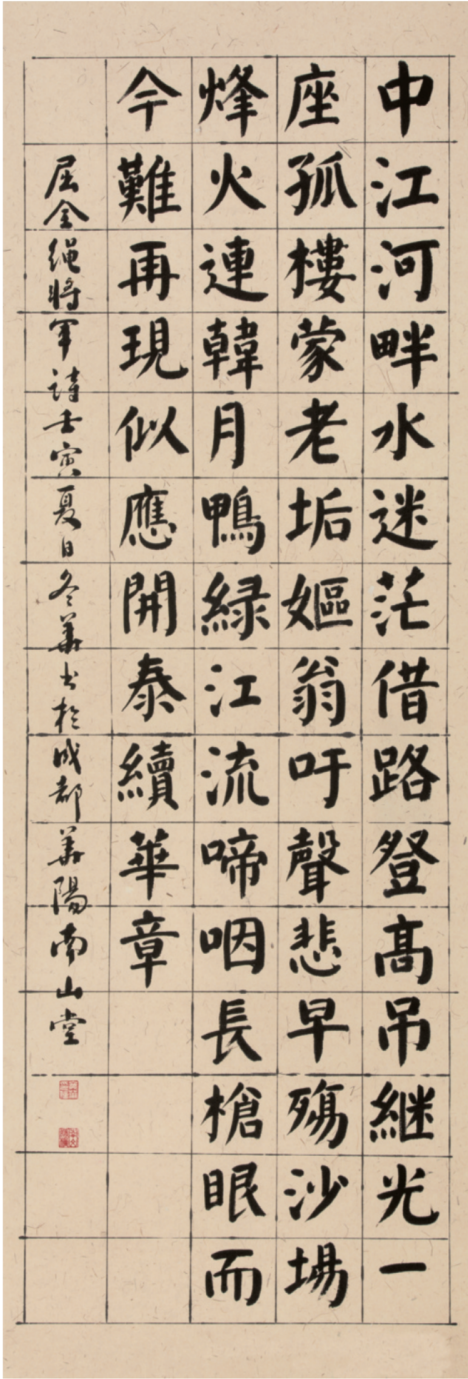 中江河畔水迷茫借路登高吊継光一
座孤樓蒙老垢嫗翁吁聲悲早殤沙場
烽火連韓月鴨緑江流啼咽長槍眼而
今難再現似應開泰續華章
屈全绳將軍詩壬寅夏日冬華書於成都華陽南山堂